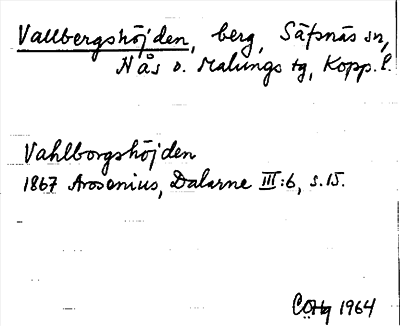 Vallbergshöjden, berg, Säfsnäs sn,
Nås o. Malungs tg, Kopp. l.
Vahlborgshöjden
1867 Arosenius, Dalarne III:6, s.15.
1964